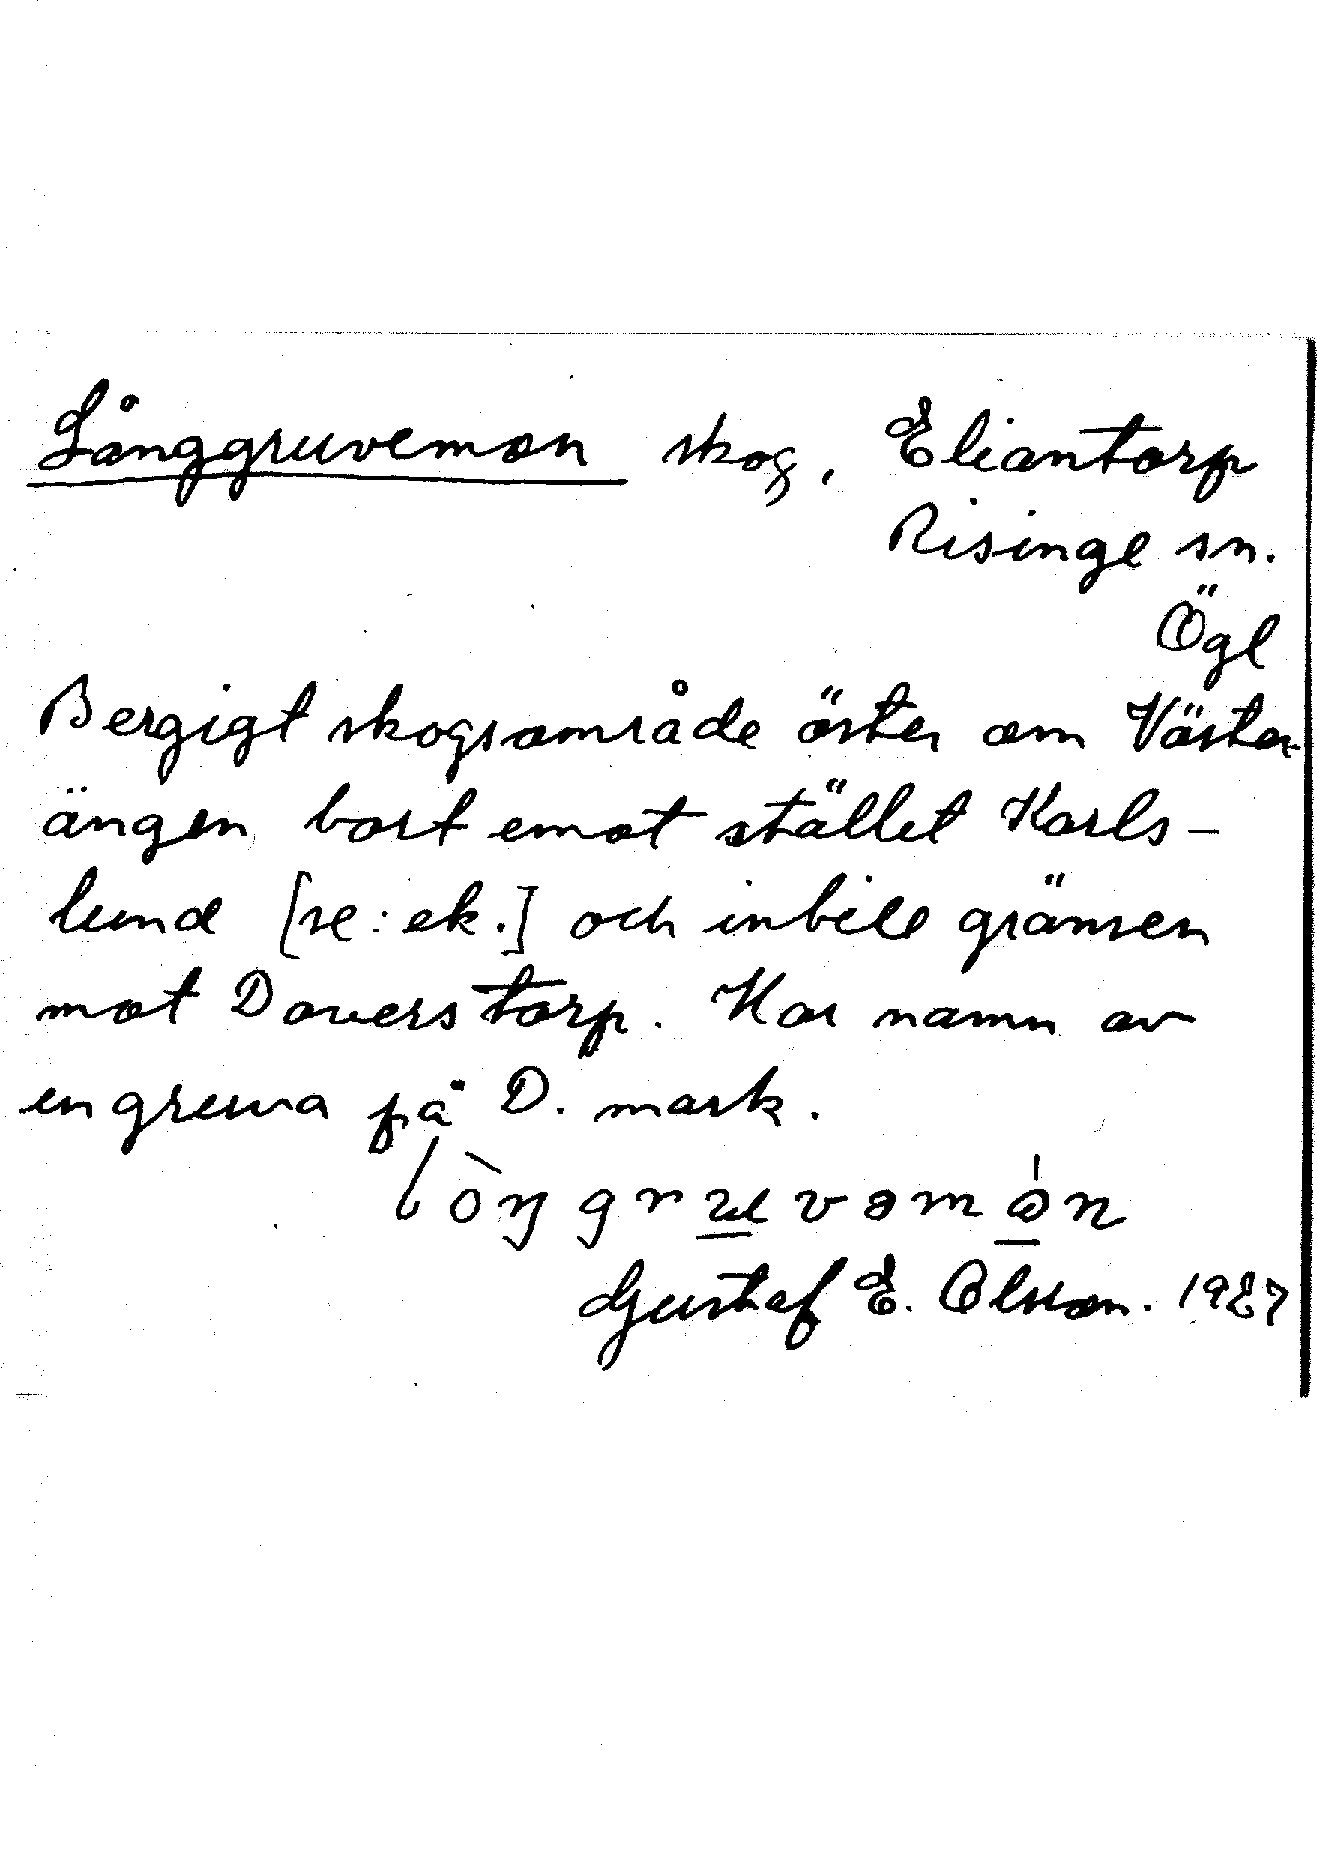 Långgruvemon skog, Eliantorp
Risinge sn.
Ögl
Bergigt skogsområde öster om Väster-
ängen bort emot stället Karls-
lund [se: ek.] och inbill gränsen
mot Daverstorp. Har namn av
en gruva på D. mark.
lòŋgruvəmón
Gustaf E. Olsson. 1927